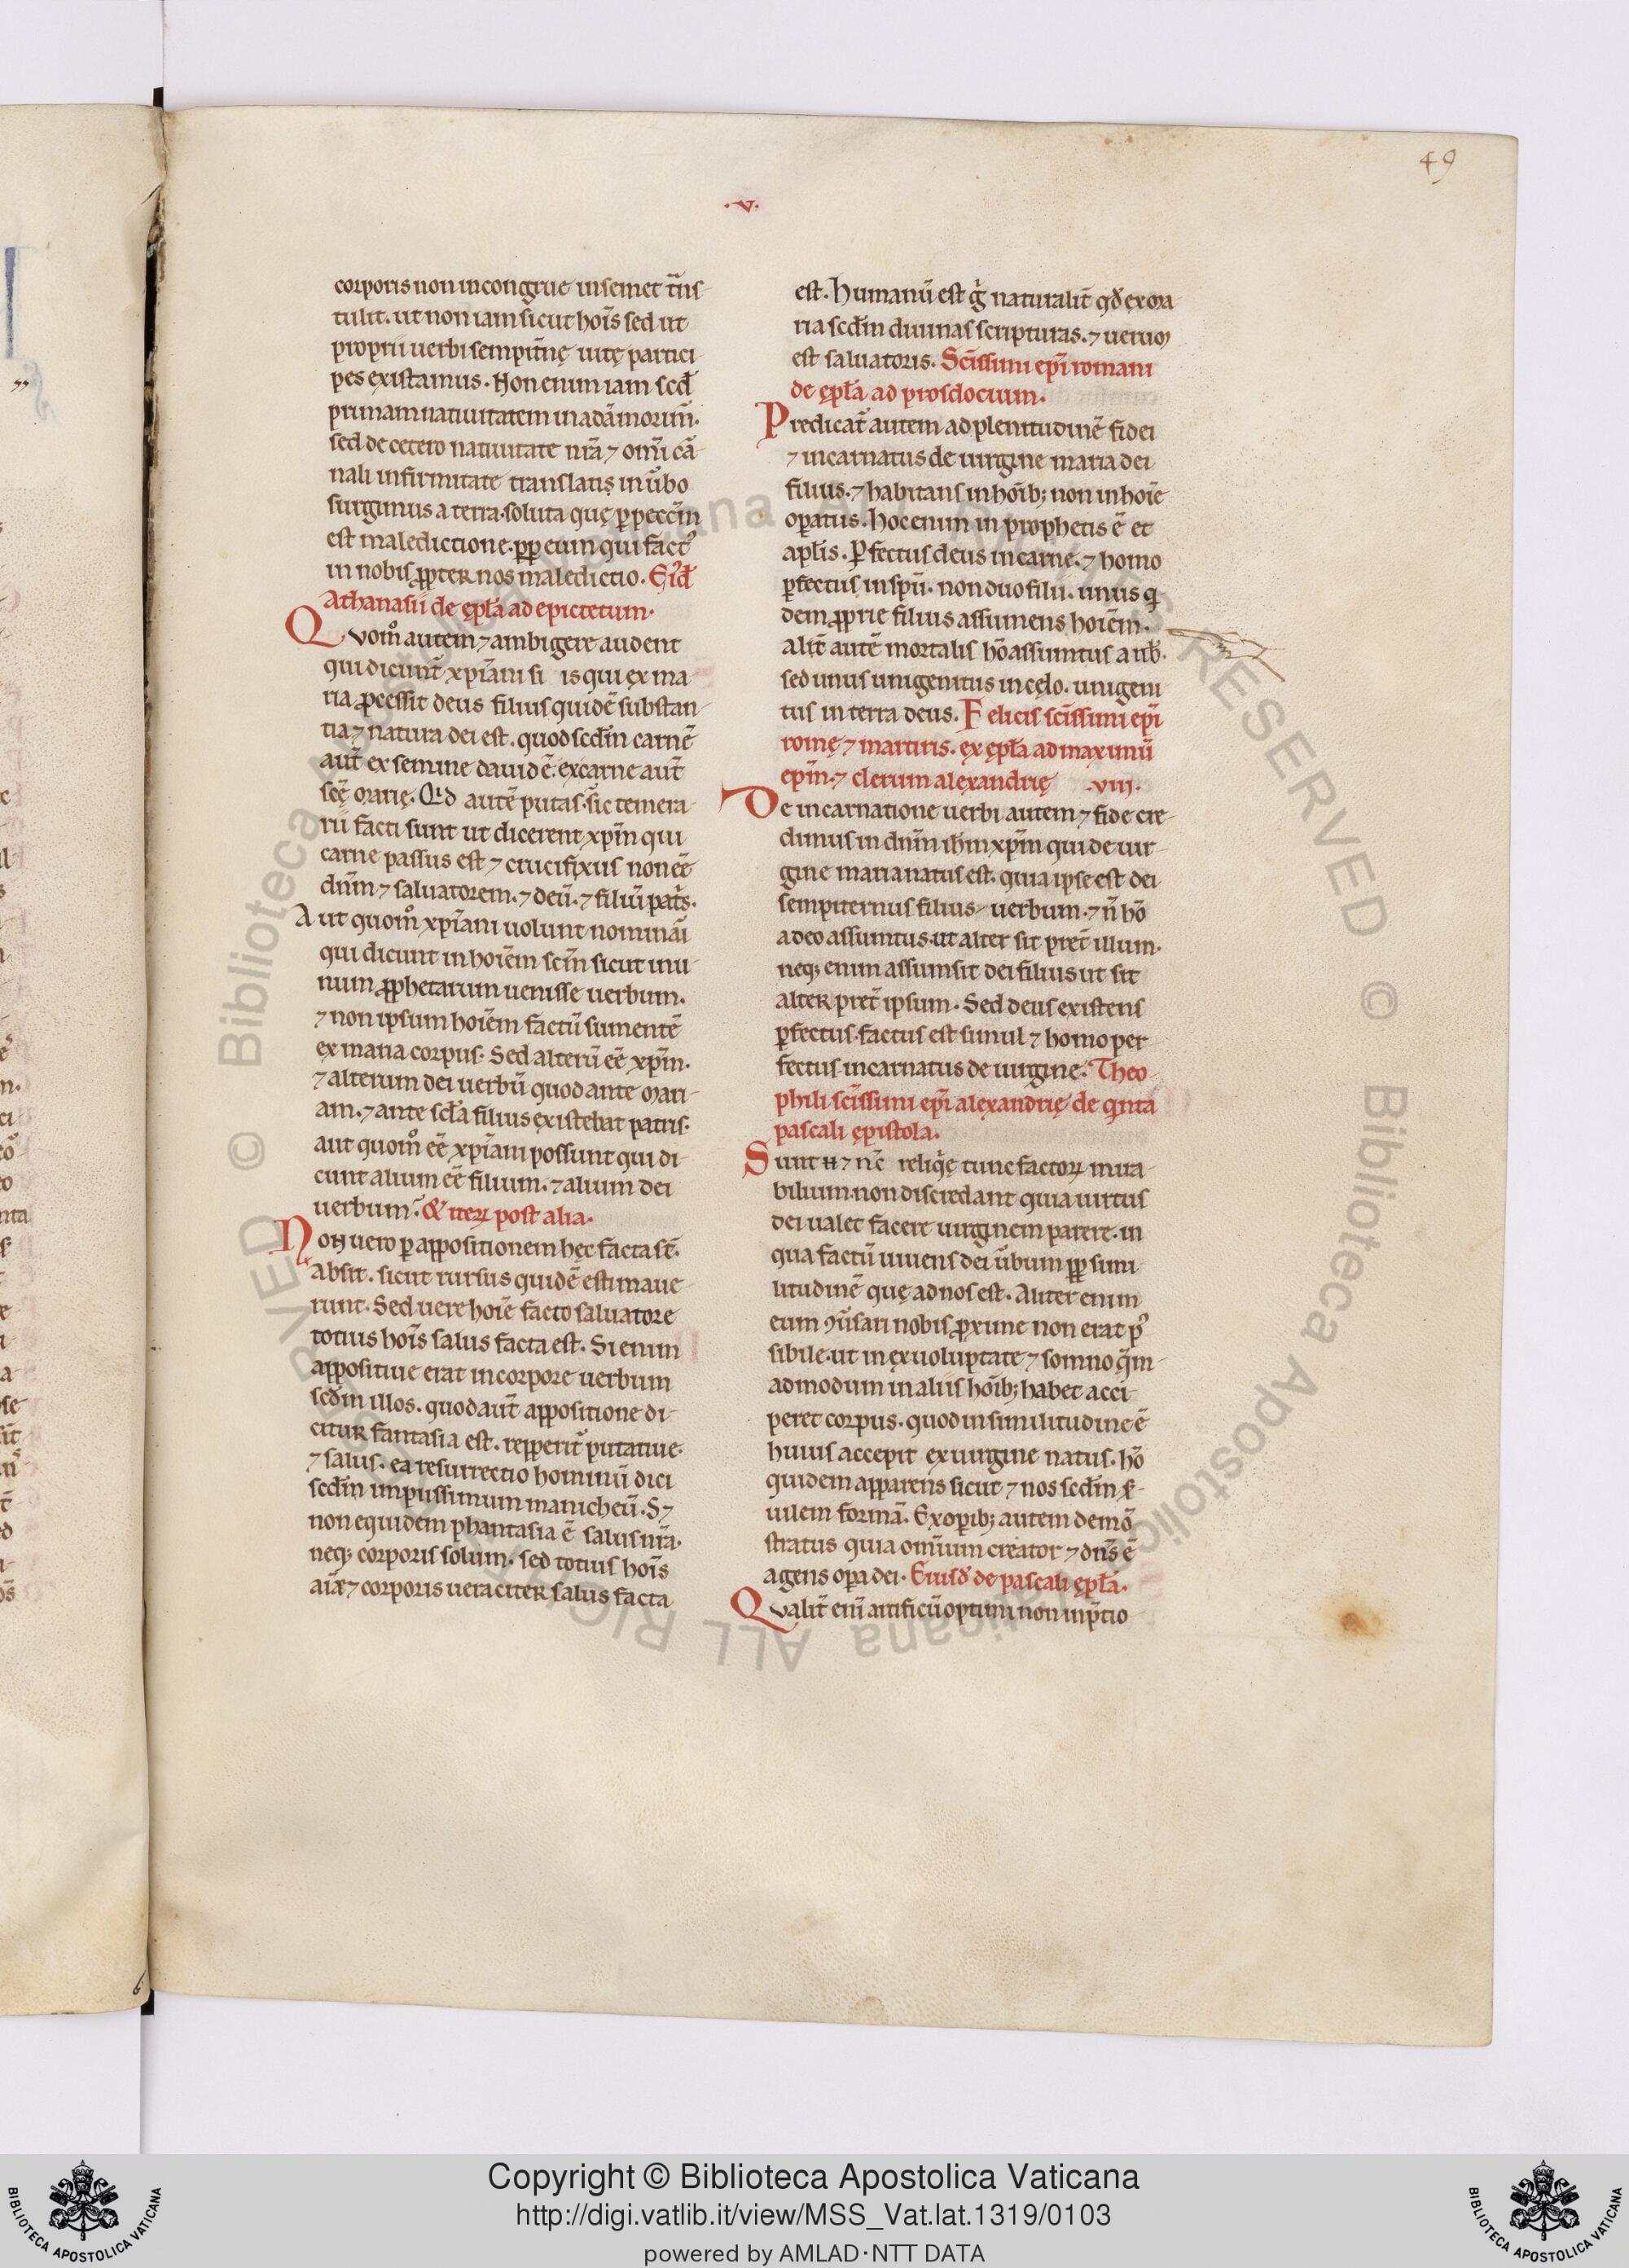 49
.v.
corporis non incongrue insemet t̄nſ
tulit. ut non iam sicut hoı̄s sed ut
proprii uerbi sempit̄nę uitę partici
pes existamus. Non enim iam scd̄
primam natiuitatem in adā morim̄.
sed de cetero natiuitate nr̄a ⁊ om̄i cā
nali infirmitate translatis in ūbo
surgimus a terra. soluta quę ꝑ peccm̄
est maledictione. ꝓp eum qui fact᾿
in nobis ꝓpter nos maledictio. Ei᾿d̄
Athanasii de ępl̄a ad epictetum.
Quom̊ autem ⁊ ambigere audent
qui dicunt̄ xp̄iani si is qui ex ma
ria ꝓcessit deus filius quidē substan
tia ⁊ natura dei est. quod scdm̄ carnē
aut̄ ex semine dauid ē. ex carne aut̄
scē marię. Qid autē putas. sic temera
rii facti sunt ut dicerent xpm̄ qui
carne passus est ⁊ crucifixus non eē
dn̄m ⁊ saluatorem. ⁊ deū. ⁊ filiū pat̄s.
Aut quom̊ xp̄iani uolunt nominari
qui dicunt in hoīem scm̄ sicut in u
num ꝓphetarum uenisse uerbum.
⁊ non ipsum hoīem factū sumentē
ex maria corpus. Sed alterū eē xpm̄.
⁊ alterum dei uerbū quod ante mari
am. ⁊ ante scl̄a filius existebat patris.
aut quom̊ eē xp̄iani possunt qui di
cunt alium eē filium. ⁊ alium dei
uerbum. & iteꝝ post alia.
Non uero ꝑ appositionem hęc facta st̄.
Absit. sicut rursus quidē estimaue
runt. Sed uere hoīe facto saluatore
totius hoīs salus facta est. Si enim
appositiue erat in corpore uerbum
scdm̄ illos. quod aut̄ appositione di
citur fantasia est. repperit᾿ putatiue
⁊ salus. ea resurrectio hominū dici
scdm̄ impiissimum manicheū. S⁊
non equidem phantasia ē salus nr̄a.
neq; corporis solum. sed totius hoīs
aīæ ⁊ corporis ueraciter salus facta
est. Humanū est ḡ naturalit̄ qd̄ ex ma
ria scdm̄ diuinas scripturas. ⁊ uerum
est saluatoris. Scīssimi ep̄i romani
de ępl̄a ad prosdocium.
Predicat̄ autem ad plenitudinē fidei
⁊ incarnatus de uirgine maria dei
filius. ⁊ habitans in hoīb; non in hoīe
oꝑatus. Hoc enim in prophetis ē et
apl̄is. Ꝑfectus deus in carne. ⁊ homo
ꝑfectus in spū. non duo filii. unus q
dem ꝓprie filius assumens hoīem.
alit̄ autē mortalis hō assumtus a ūb̄.
sed unus unigenitus in cęlo. unigeni
tus in terra deus. Felicis scīssimi ep̄i
romę ⁊ martiris. ex ępl̄a ad maximū
ep̄m. ⁊ clerum alexandrię .viii.
De incarnatione uerbi autem ⁊ fide cre
dimus in dn̄m ihm̄ xpm̄ qui de uir
gine maria natus est. quia ipse est dei
sempiternus filius uerbum. ⁊ n̄ hō
a deo assumtus. ut alter sit pret̄ illum.
neq; enim assumsit dei filius ut sit
alter pret̄ ipsum. Sed deus existens
ꝑfectus. factus est simul ⁊ homo per
fectus incarnatus de uirgine. Theo
phili scīssimi ep̄i alexandrię de qinta
pascali ępistola.
Sunt n̄ ⁊ nc̄ reliqię tunc factoꝝ mira
bilium. non discredant quia uirtus
dei ualet facere uirginem parere. in
qua factū uiuens dei ūbum ꝓp simi
litudinē quę ad nos est. Aliter enim
eum ꝯūsari nobis ꝓxime non erat p᾿
sibile. ut in ex uoluptate ⁊ somno qēm
admodum in aliis hoīb; habet acci
peret corpus. quod in similitudine ē
huius accepit ex uirgine natus. hō
quidem apparens sicut ⁊ nos scdm̄ ẜ
uilem formā. Ex oꝑib; autem demō
stratus quia omīum creator ⁊ dn̄s ē
agens oꝑa dei. Eiusd̄ de pascali ępl̄a.
Qualit̄ enī artificū optimi non in p̄tio
Copyright © Biblioteca Apostolica Vaticana
http://digi.vatlib.it/view/MSS_Vat.lat.1319/0103
powered by AMLAD·NTT DATA
BIBLIOTECA APOSTOLICA VATICANA
BIBLIOTECA APOSTOLICA VATICANA